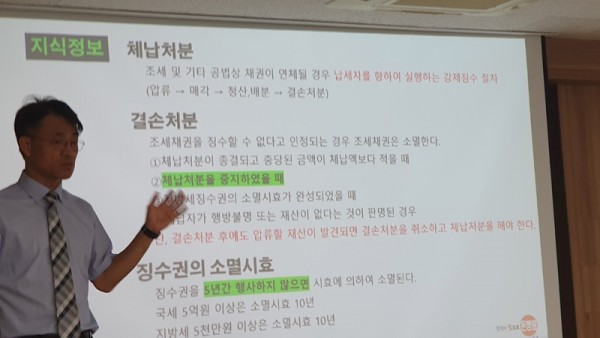 지식정보 체납처분
조세 및 기타 공법상 채권이 연체될 경우 납세자를 향하여 실행하는 강제징수 절차
(압류 → 매각 → 청산,배분 → 결손처분)
결손처분
조세채권을 징수할 수 없다고 인정되는 경우 조세채권은 소멸한다.
①체납처분이 종결되고 충당된 금액이 체납액보다 적을 때
②체납처분을 중지하였을 때
세징수권의 소멸시효가 완성되었을 때
자가 행방불명 또는 재산이 없다는 것이 판명된 경우
결손처분 후에도 압류할 재산이 발견되면 결손처분을 취소하고 체납처분을 해야 한다.
징수권의 소멸시효
징수권을 5년간 행사하지 않으면 시효에 의하여 소멸된다.
국세 5억원 이상은 소멸시효 10년
지방세 5천만원 이상은 소멸시효 10년